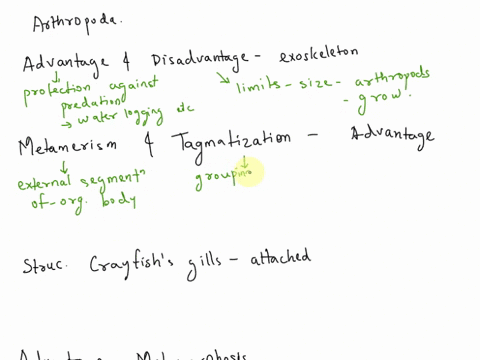 Arthropoda.
Advantage & Disadvantage - exoskeleton
protection against
predation
→ water logging etc
limits - size - arthropods
- grow.
Metamerism & Tagmatization - Advantage
external segmentⁿ
of - org. body
grouping
Struc. Crayfish's gills - attached